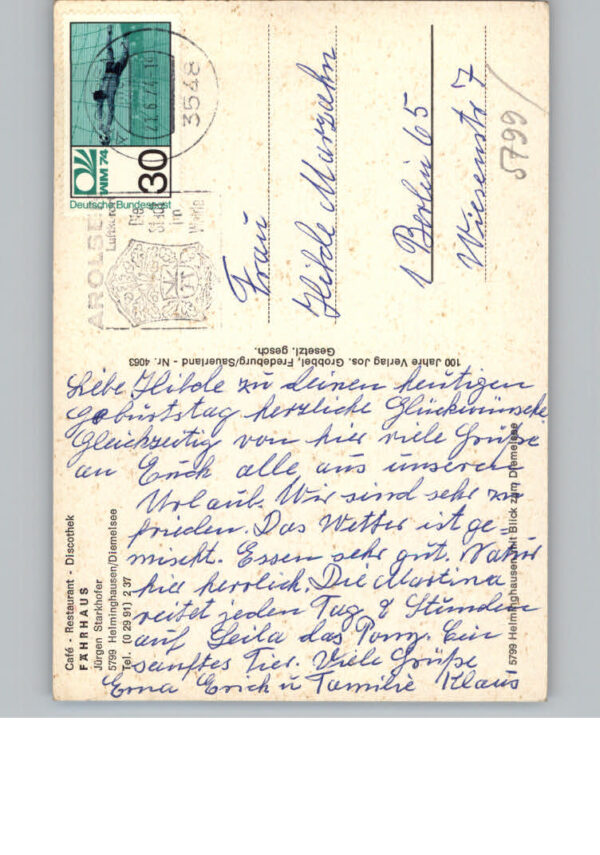 Deutsche Bundespost
30
WM 74
3548
AROLSEN
Luftkurort
Die
Stadt
im
Walde
Frau
Hilde Marzahn
1 Berlin 65
Wiesenstr 7
5799/
100 Jahre Verlag Jos. Grobbel, Fredeburg/Sauerland - Nr. 4063
Gesetzl. gesch.
Liebe Hilde zu deinen heutigen
Geburtstag herzliche Glückwünsche
Gleichzeitig von hier viele Grüße
an Euch alle aus unseren
Urlaub. Wir sind sehr zu
frieden. Das Wetter ist ge=
mischt. Essen sehr gut. Natur
hier herrlich. Die Martina
reitet jeden Tag 2 Stunden
auf Leila das Pony. Ein
sanftes Tier. Viele Grüße
Erna Erich u Familie Klaus
Café - Restaurant - Discothek
FÄHRHAUS
Jürgen Starkhofer
5799 Helminghausen/Diemelsee
Tel. (0 29 91) 2 37
5799 Helminghausen mit Blick zum Diemelsee